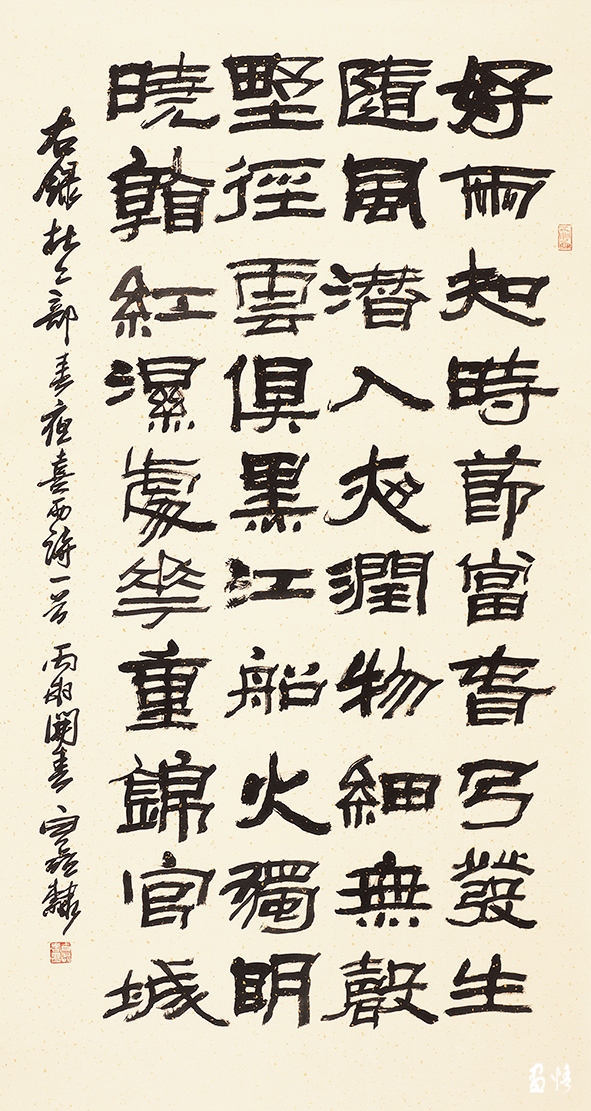 好雨知時節當春乃發生
隨風潛入夜潤物細無聲
野徑雲俱黑江船火獨明
曉看紅濕處花重錦官城
右錄杜工部春夜喜雨詩一首 丙申開春 隸